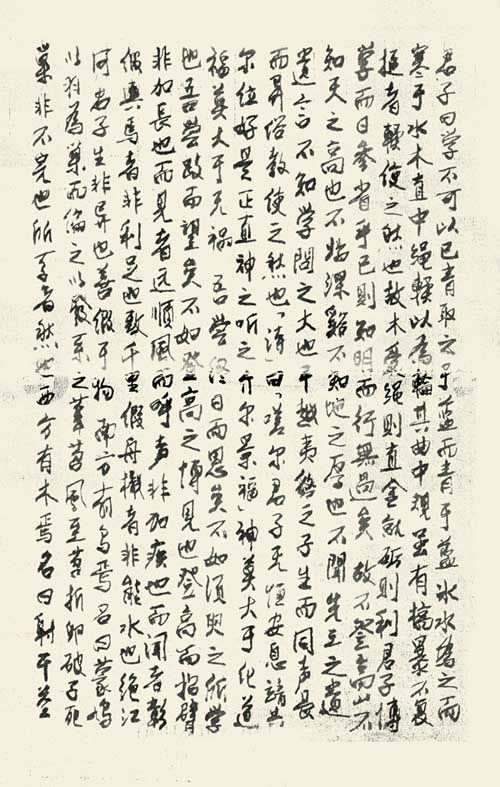 君子曰学不可以已青取之于蓝而青于蓝冰水為之而
寒于水木直中绳輮以為輪其曲中规虽有槁暴不复
挺者輮使之然也故木受绳则直金就砺则利君子博
学而日参省乎己则知明而行無過矣故不登高山不
知天之高也不临深谿不知地之厚也不聞先王之遗
遗言不知学問之大也干越夷貉之子生而同声長
而异俗教使之然也「诗」曰「嗟尔君子无恒安息靖共
尔位好是正直神之听之介尔景福」神莫大于化道
福莫大于无祸 吾尝终日而思矣不如须臾之所学
也吾尝跂而望矣不如登高之博見也登高而招臂
非加長也而見者远顺風而呼声非加疾也而闻者彰
假輿馬者非利足也致千里假舟檝者非能水也绝江
河君子生非异也善假于物 南方有鸟焉名曰蒙鸠
以羽為巢而编之以發系之苇苕風至苕折卵破子死
巢非不完也所系者然也西方有木焉名曰射干茎